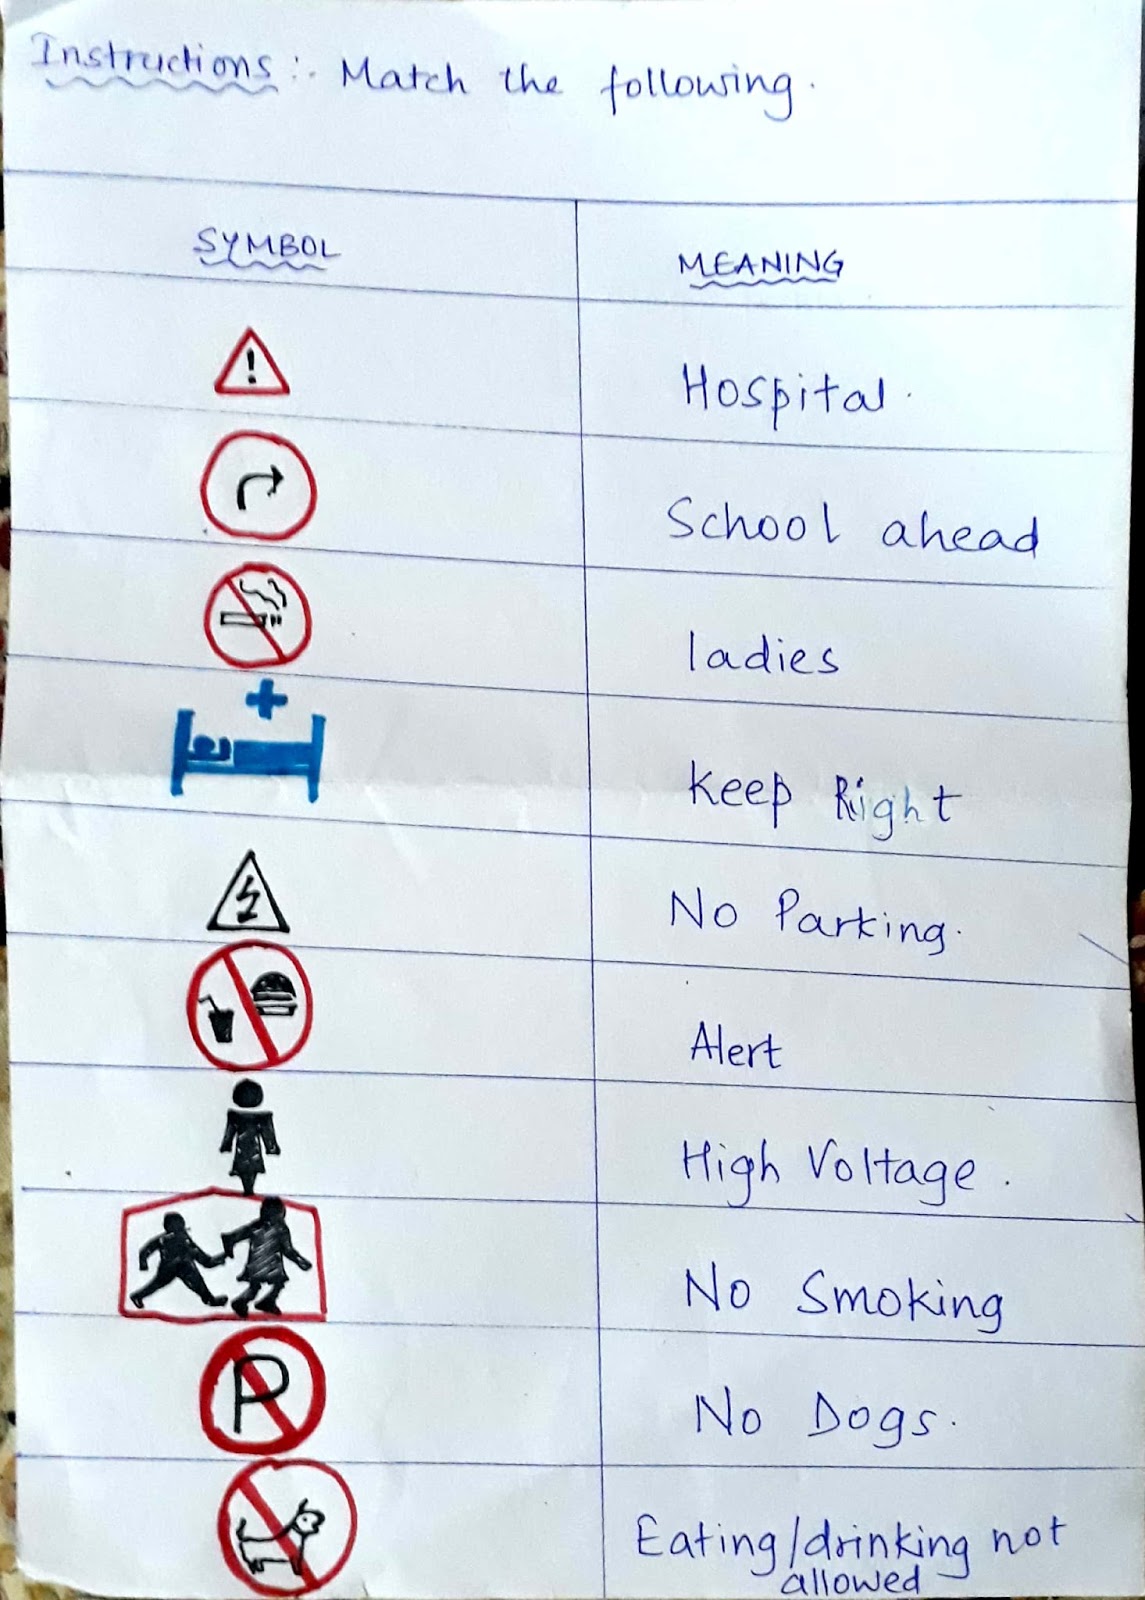 Instructions:- Match the following.
SYMBOL MEANING
!
Hospital.
School ahead
ladies
Keep Right
No Parking.
Alert
High Voltage.
No Smoking
P
No Dogs.
Eating/drinking not
allowed